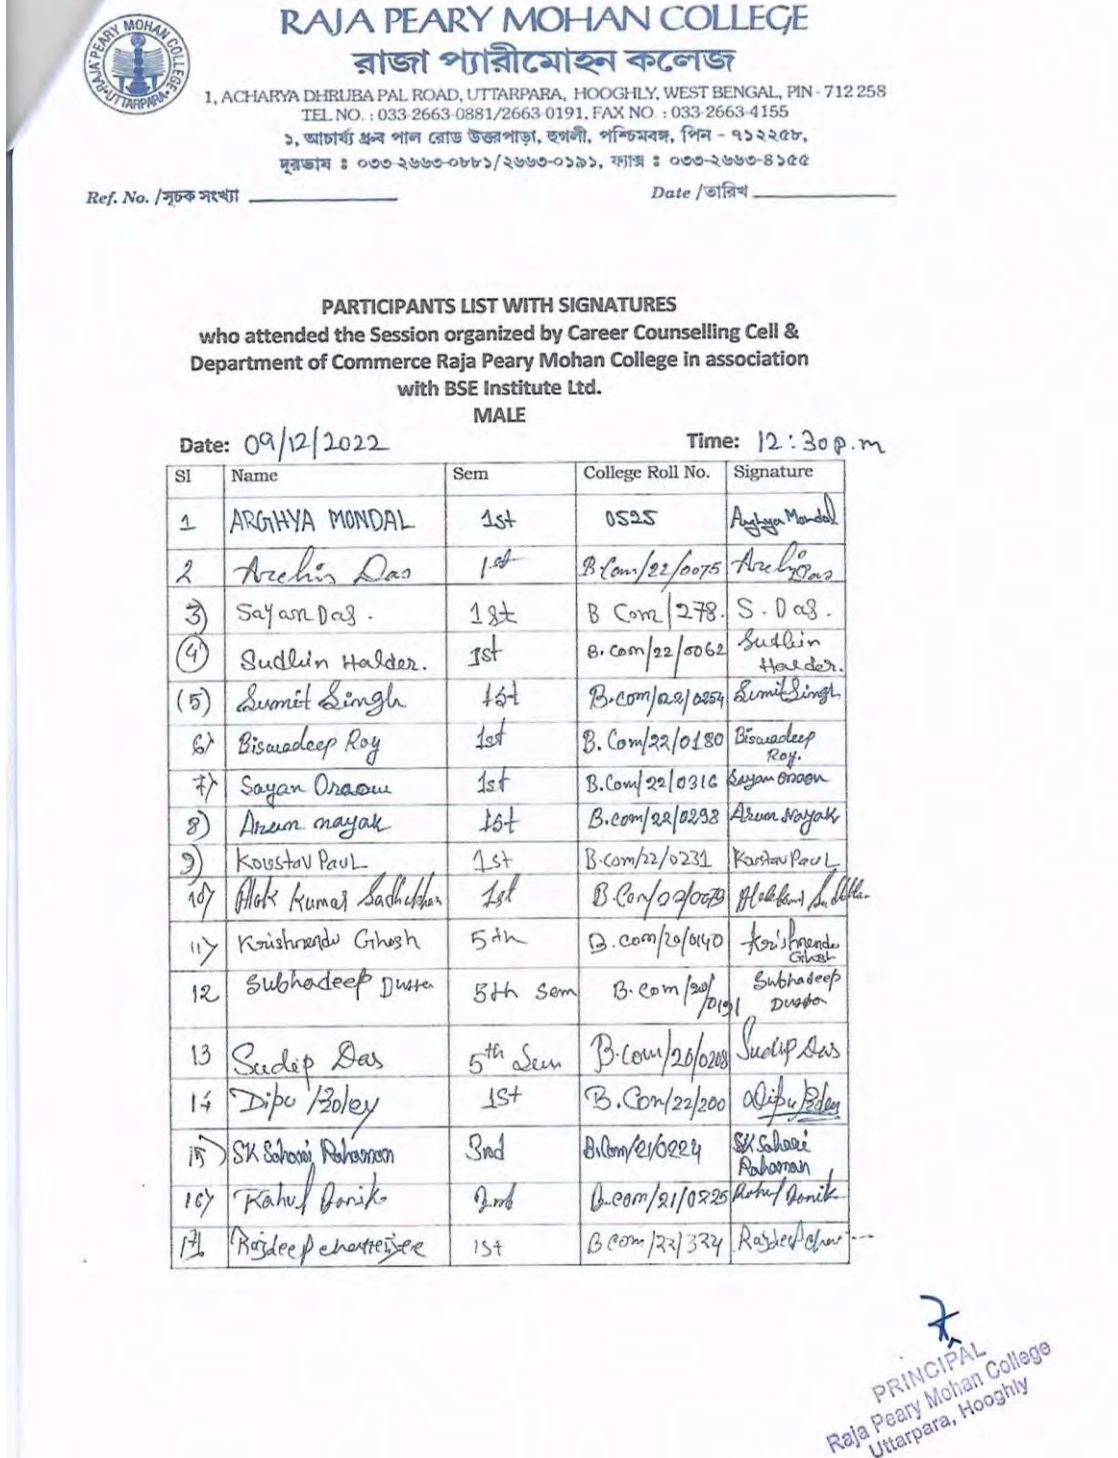 RAJA PEARY MOHAN COLLEGE
রাজা প্যারীমোহন কলেজ
1, ACHARYA DHRUBA PAL ROAD, UTTARPARA, HOOGHLY, WEST BENGAL, PIN - 712 258
TEL NO. : 033-2663-0881/2663-0191, FAX NO. : 033-2663-4155
১, আচার্য্য ধ্রুব পাল রোড উত্তরপাড়া, হুগলী, পশ্চিমবঙ্গ, পিন - ৭১২২৫৮,
দূরভাষ ঃ ০৩৩-২৬৬৩-০৮৮১/২৬৬৩-০১৯১, ফ্যাক্স ঃ ০৩৩-২৬৬৩-৪১৫৫
RAJA PEARY MOHAN COLLEGE
UTTARPARA
Ref. No. /সূচক সংখ্যা Date /তারিখ
PARTICIPANTS LIST WITH SIGNATURES
who attended the Session organized by Career Counselling Cell &
Department of Commerce Raja Peary Mohan College in association
with BSE Institute Ltd.
MALE
Date: 09/12/2022 Time: 12:30p.m
Sl Name Sem College Roll No. Signature
1 ARGHYA MONDAL 1st 0525 Arghya Mondal
2 Archis Das 1st B.Com/22/0075 Das
3) Sayan Das. 1st B Com/278. S. Das.
4 Sudhin Halder. 1st B.com/22/0062 Sudhin Halder.
(5) Sumit Singh 1st B.com/22/0254 Sumit Singh
6) Biswadeep Roy 1st B.Com/22/0180 Biswadeep Roy.
7) Sayan Oraon 1st B.Com/22/0316 Sayan Oraon
8) Arun nayak 1st B.com/22/0298 Arun Nayak
9) Koustav Paul 1st B.com/22/0231 Koustav Paul
10) Alok Kumar Sadhukhan 1st
11) Krishnendu Ghosh 5th B.com/20/0140 Krishnendu Ghosh
12 Subhadeep Dutta 5th Sem B.com/20/0191 Subhadeep Dutta
13 Sudip Das 5th Sem B.com/20/0208 Sudip Das
14 Dipu 1st B.Com/22/200 Dipu
15) SK Rahaman 3rd B.Com/21/0224 SK Rahaman
16) Rahul 2nd B.com/21/0225 Rahul
17) Rajdeep chatterjee 1st B com/22/324 Rajdeep
PRINCIPAL
Raja Peary Mohan College
Uttarpara, Hooghly